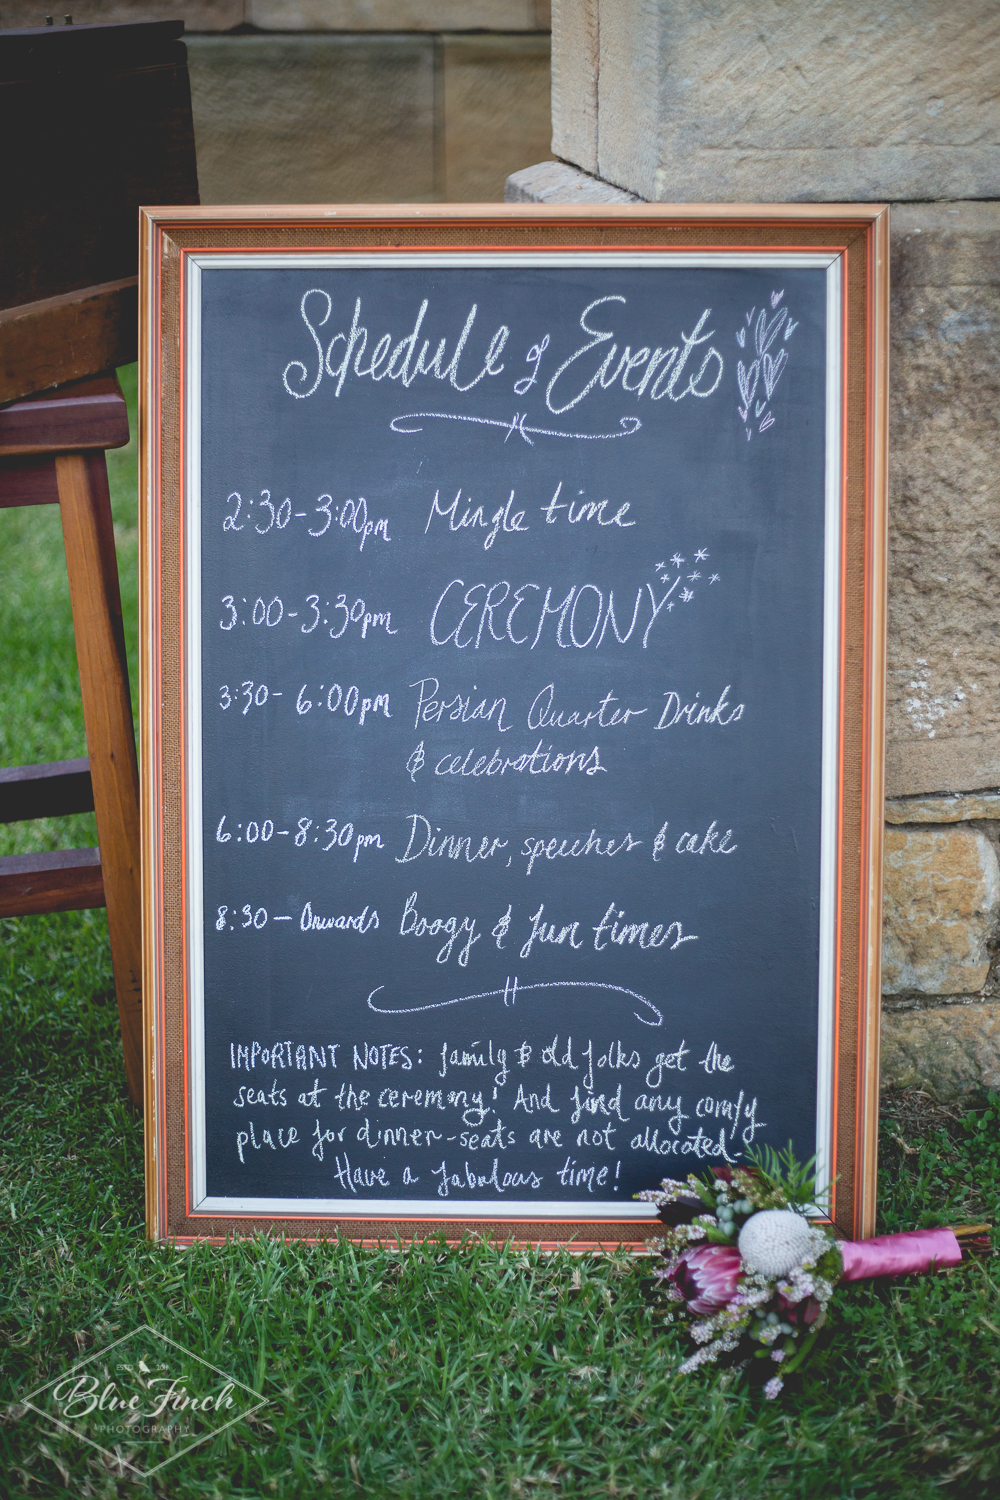 Schedule of Events
2:30-3:00pm Mingle time
3:00-3:30pm CEREMONY
3:30-6:00pm Persian Quarter Drinks
& celebrations
6:00-8:30pm Dinner, speeches & cake
8:30-Onwards Boogy & fun times
IMPORTANT NOTES: family & old folks get the
seats at the ceremony! And find any comfy
place for dinner-seats are not allocated.
Have a fabulous time!
Blue Finch
PHOTOGRAPHY